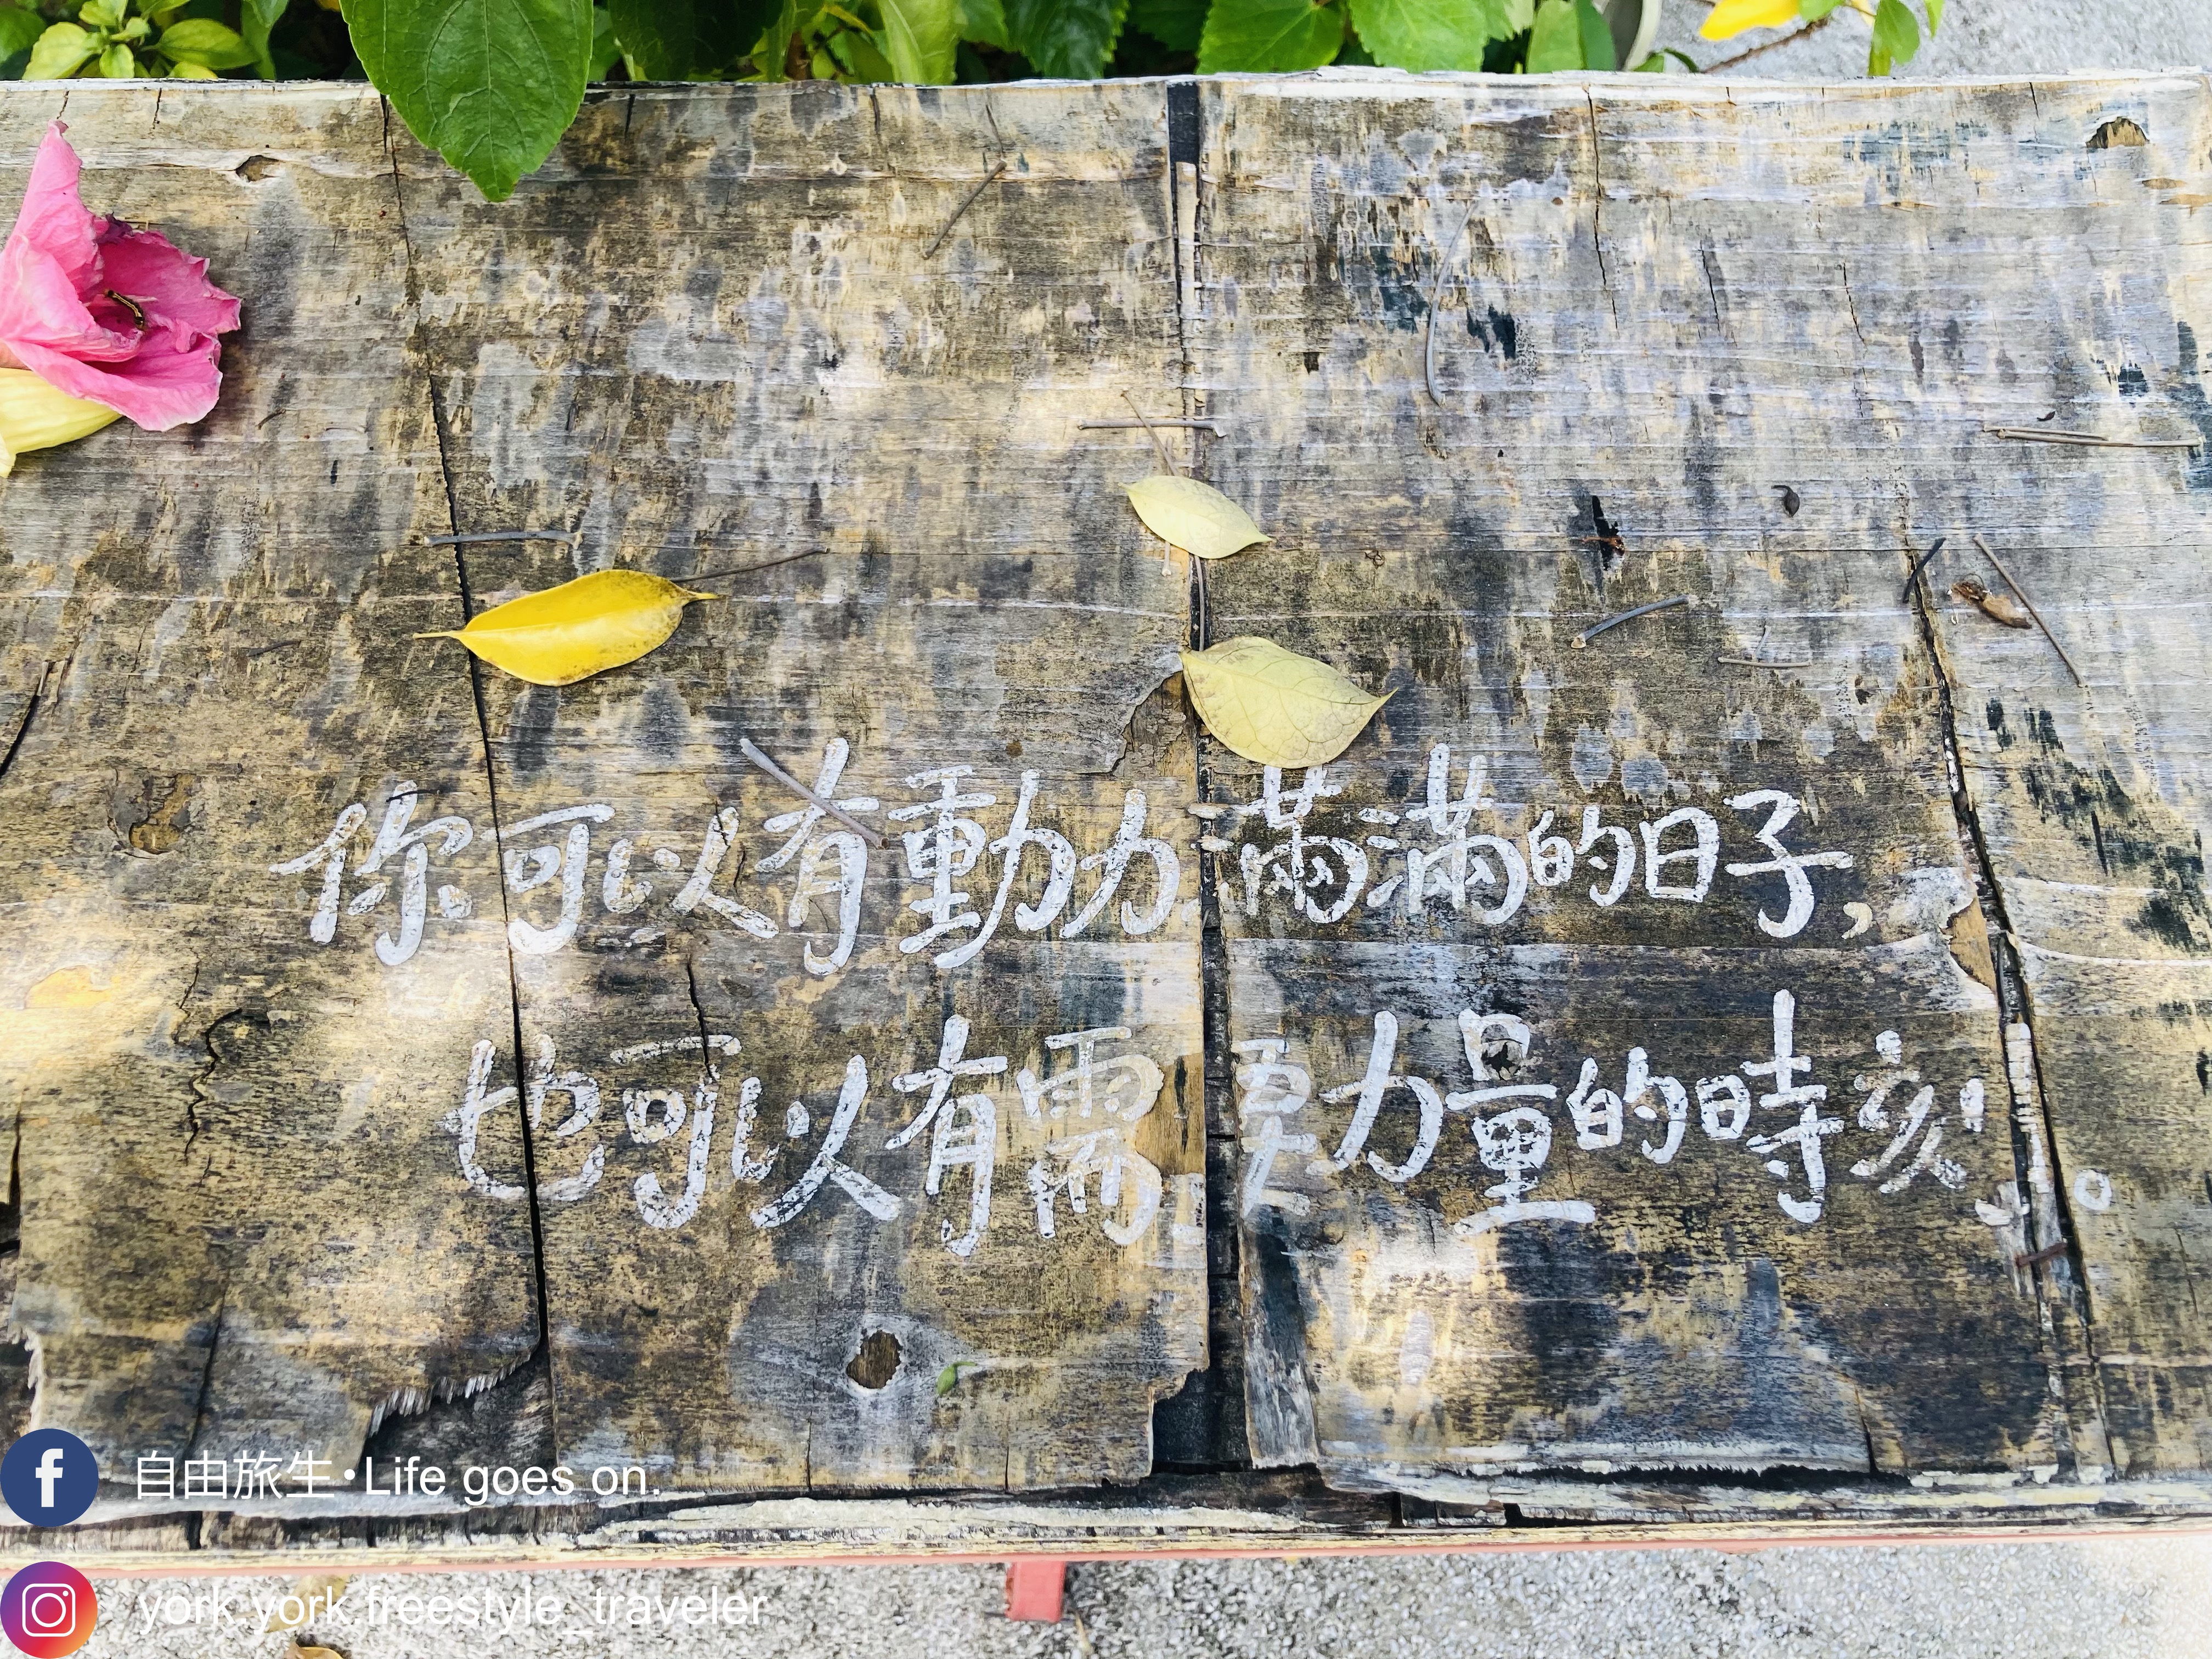 你可以有動力滿滿的日子，
也可以有需要力量的時刻。
自由旅生•Life goes on.
york.york.freestyle_traveler